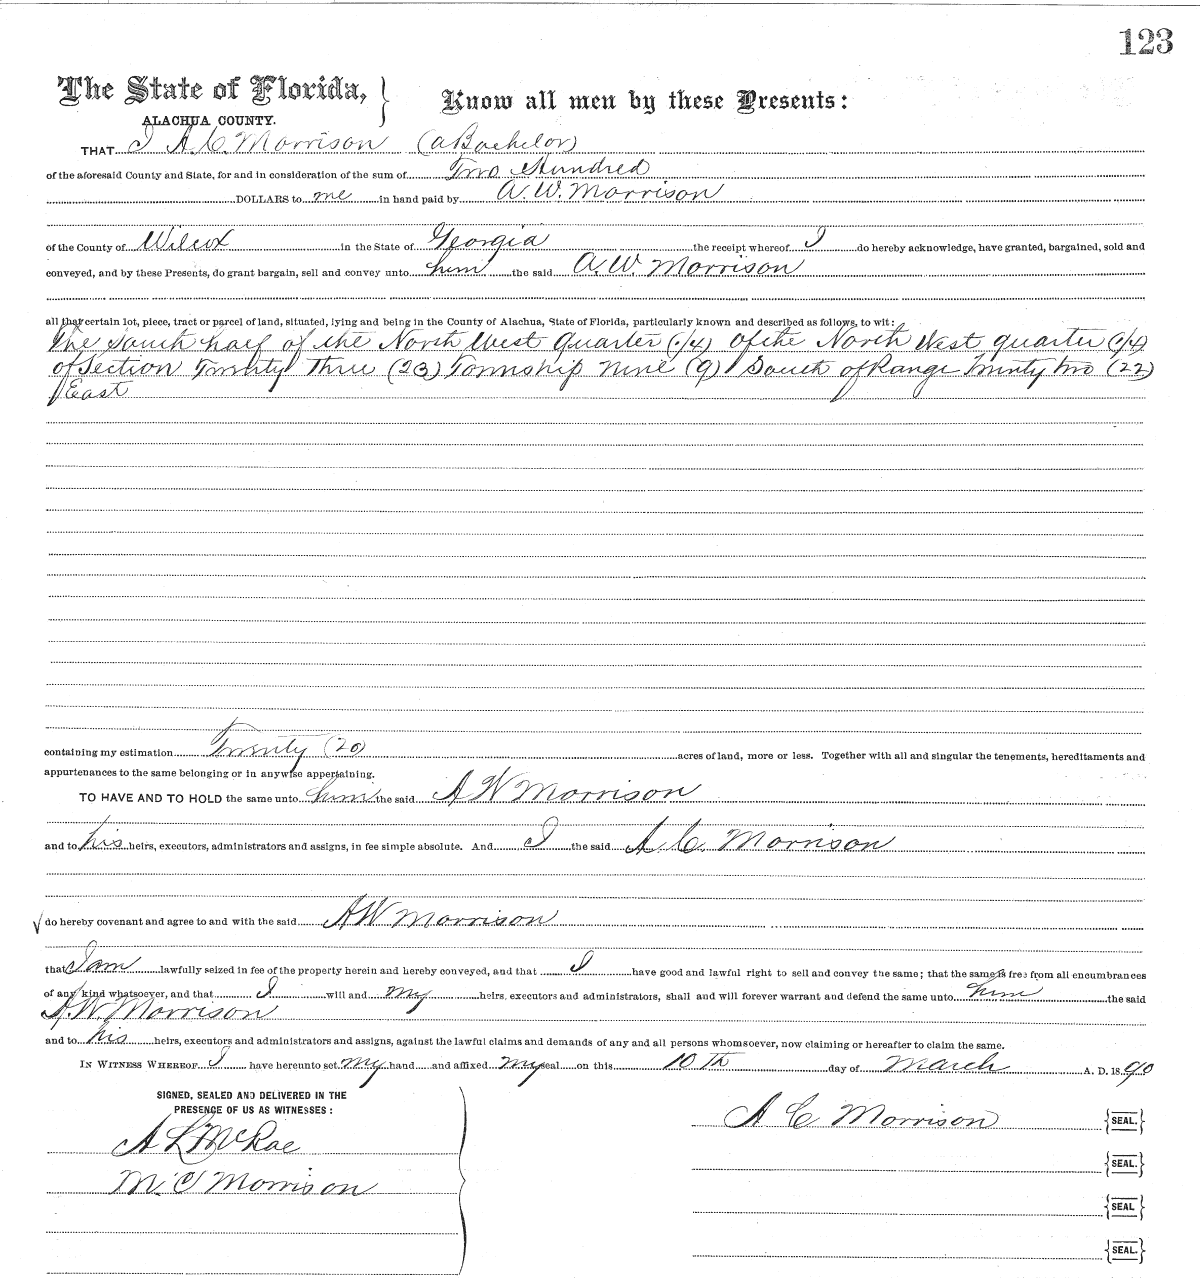 123
The State of Florida, Know all men by these Presents:
ALACHUA COUNTY.
THAT I A. C. Morrison (a Bachelor)
of the aforesaid County and State, for and in consideration of the sum of Two Hundred
DOLLARS to me in hand paid by A. W. Morrison
of the County of Wilcox in the State of Georgia the receipt whereof I do hereby acknowledge, have granted, bargained, sold and
conveyed, and by these Presents, do grant bargain, sell and convey unto him the said A. W. Morrison
all that certain lot, piece, tract or parcel of land, situated, lying and being in the County of Alachua, State of Florida, particularly known and described as follows, to wit:
The South half of the North West Quarter (1/4) of the North West quarter (1/4)
of Section Twenty Three (23) Township Nine (9) South of Range Twenty two (22)
East
containing my estimation Twenty (20) acres of land, more or less. Together with all and singular the tenements, hereditaments and
appurtenances to the same belonging or in anywise appertaining.
TO HAVE AND TO HOLD the same unto him the said A W Morrison
and to his heirs, executors, administrators and assigns, in fee simple absolute. And I the said A. C. Morrison
do hereby covenant and agree to and with the said A W Morrison
that I am lawfully seized in fee of the property herein and hereby conveyed, and that I have good and lawful right to sell and convey the same; that the same is free from all encumbrances
of any kind whatsoever, and that I will and my heirs, executors and administrators, shall and will forever warrant and defend the same unto him the said
A. W. Morrison
and to his heirs, executors and administrators and assigns, against the lawful claims and demands of any and all persons whomsoever, now claiming or hereafter to claim the same.
IN WITNESS WHEREOF I have hereunto set my hand and affixed my seal on this 10th day of March A. D. 1890
SIGNED, SEALED AND DELIVERED IN THE
PRESENCE OF US AS WITNESSES:
A C Morrison SEAL.
A L McRae
SEAL.
M. C Morrison
SEAL
SEAL.